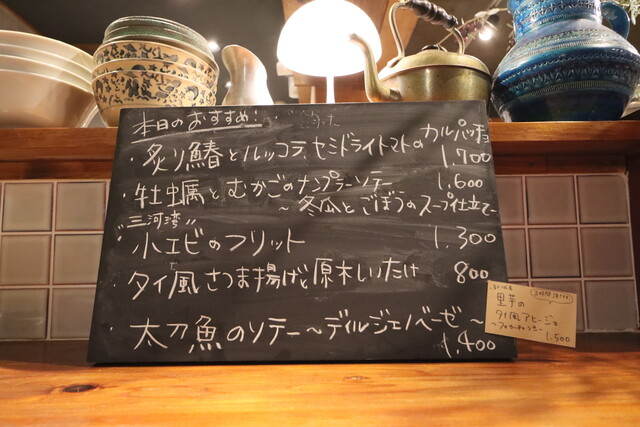 本日のおすすめ!
・炙り鰆とルッコラ、セミドライトマトのカルパッチョ
1.700
・牡蠣と、むかごのナンプラーソテー 1.600
～冬瓜とごぼうのスープ仕立て～
"三河湾"
小エビのフリット 1.300
・タイ風さつま揚げと原木しいたけ 800
・太刀魚のソテー～ディルジェノベーゼ～
1.400
里芋の
タイ風アヒージョ
1.500